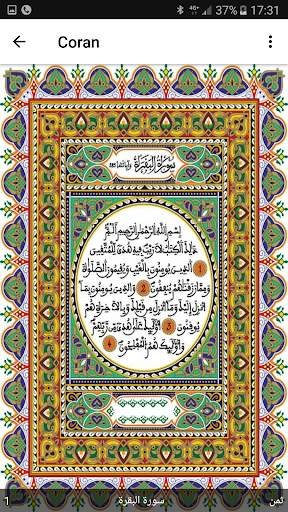 37% 17:31
Coran
سورة البقرة وآياتها
بسم الله الرحمن الرحيم ألم
ذلك الكتب لا ريب فيه هدى للمتقين
1 الذين يومنون بالغيب ويقيمون الصلوة
ومما رزقنهم ينفقون 2 والذين يومنون بما
أنزل إليك وما أنزل من قبلك وبالاخرة هم
يوقنون 3 أولئك على هدى من ربهم
وأولئك هم المفلحون 4
ثمن سورة البقرة 1